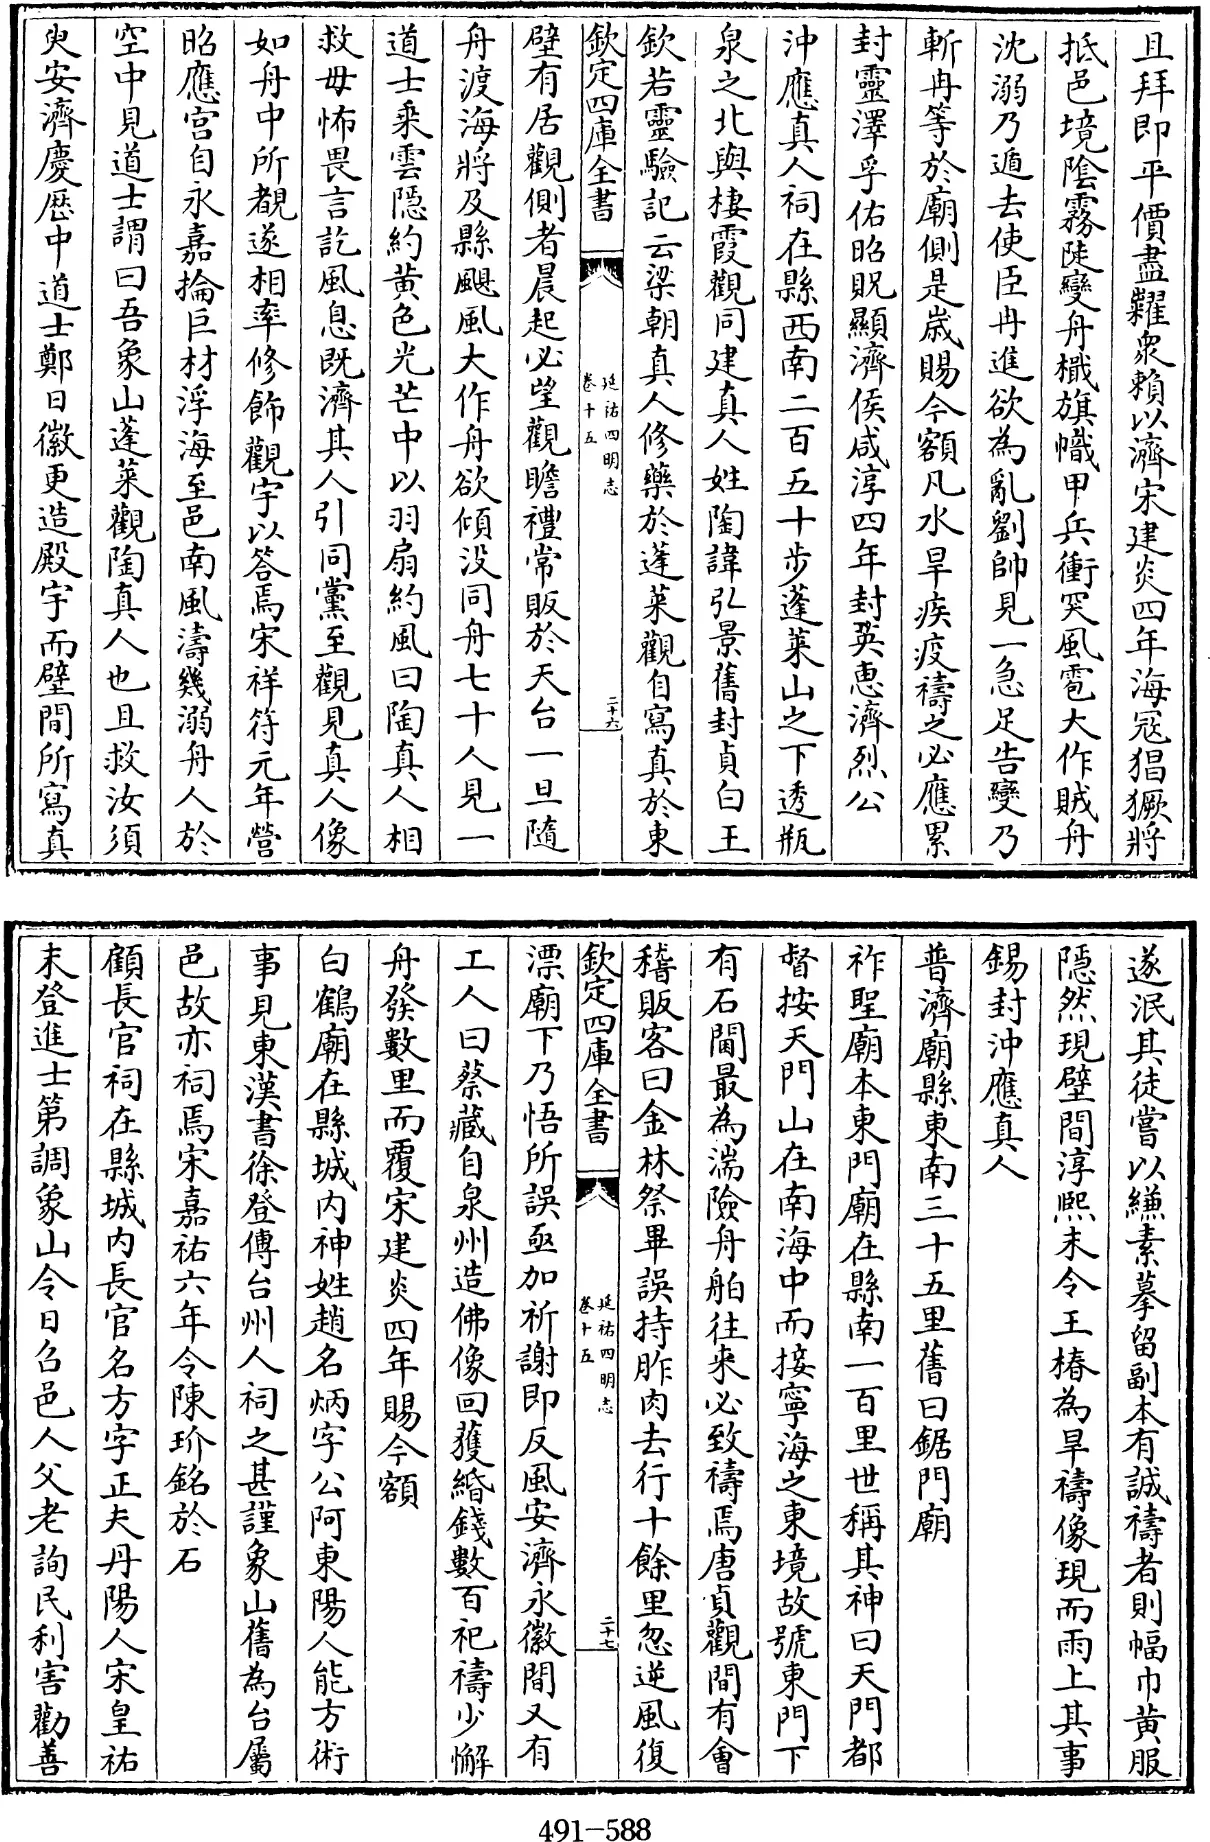 且拜即平價盡糶衆賴以濟宋建炎四年海冦猖獗將
抵邑境隂霧陡變舟檝旗幟甲兵衝突風雹大作賊舟
沈溺乃遁去使臣冉進欲為亂劉帥見一急足告變乃
斬冉等於廟側是嵗賜今額凡水旱疾疫禱之必應累
封靈澤孚佑昭貺顯濟侯咸淳四年封英惠濟烈公
沖應真人祠在縣西南二百五十步蓬萊山之下透瓶
泉之北與棲霞觀同建真人姓陶諱弘景舊封貞白王
欽若靈驗記云梁朝真人修藥於蓬萊觀自寫真於東
欽定四庫全書
延祐四明志
卷十五
二十六
壁有居觀側者晨起必望觀瞻禮常販於天台一旦隨
舟渡海將及縣颶風大作舟欲傾没同舟七十人見一
道士乗雲隱約黄色光芒中以羽扇約風曰陶真人相
救毋怖畏言訖風息既濟其人引同黨至觀見真人像
如舟中所覩遂相率修飾觀宇以答焉宋祥符元年營
昭應宫自永嘉掄巨材浮海至邑南風濤幾溺舟人於
空中見道士謂曰吾象山蓬萊觀陶真人也且救汝須
臾安濟慶歴中道士鄭日徽更造殿宇而壁間所寫真
遂泯其徒嘗以縑素摹留副本有誠禱者則幅巾黄服
隱然現壁間淳熙末令王椿為旱禱像現而雨上其事
錫封沖應真人
普濟廟縣東南三十五里舊曰鋸門廟
祚聖廟本東門廟在縣南一百里世稱其神曰天門都
督按天門山在南海中而接寧海之東境故號東門下
有石閫最為湍險舟舶往來必致禱焉唐貞觀間有會
稽販客曰金林祭畢誤持胙肉去行十餘里忽逆風復
欽定四庫全書
延祐四明志
卷十五
二十七
漂廟下乃悟所誤亟加祈謝即反風安濟永徽間又有
工人曰蔡藏自泉州造佛像回獲緡錢數百祀禱少懈
舟發數里而覆宋建炎四年賜今額
白鶴廟在縣城内神姓趙名炳字公阿東陽人能方術
事見東漢書徐登傳台州人祠之甚謹象山舊為台屬
邑故亦祠焉宋嘉祐六年令陳玠銘於石
顧長官祠在縣城内長官名方字正夫丹陽人宋皇祐
末登進士第調象山令日召邑人父老詢民利害勸善
491-588